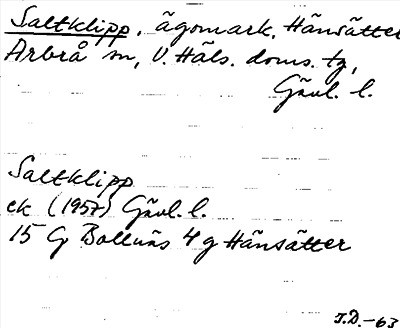 Saltklipp, ägomark, Hänsätter
Arbrå sn, V. Häls. doms. tg,
Gävl. l.
Saltklipp
ek (1957) Gävl. l.
15 G Bollnäs 4 g Hänsätter
J.D.-63